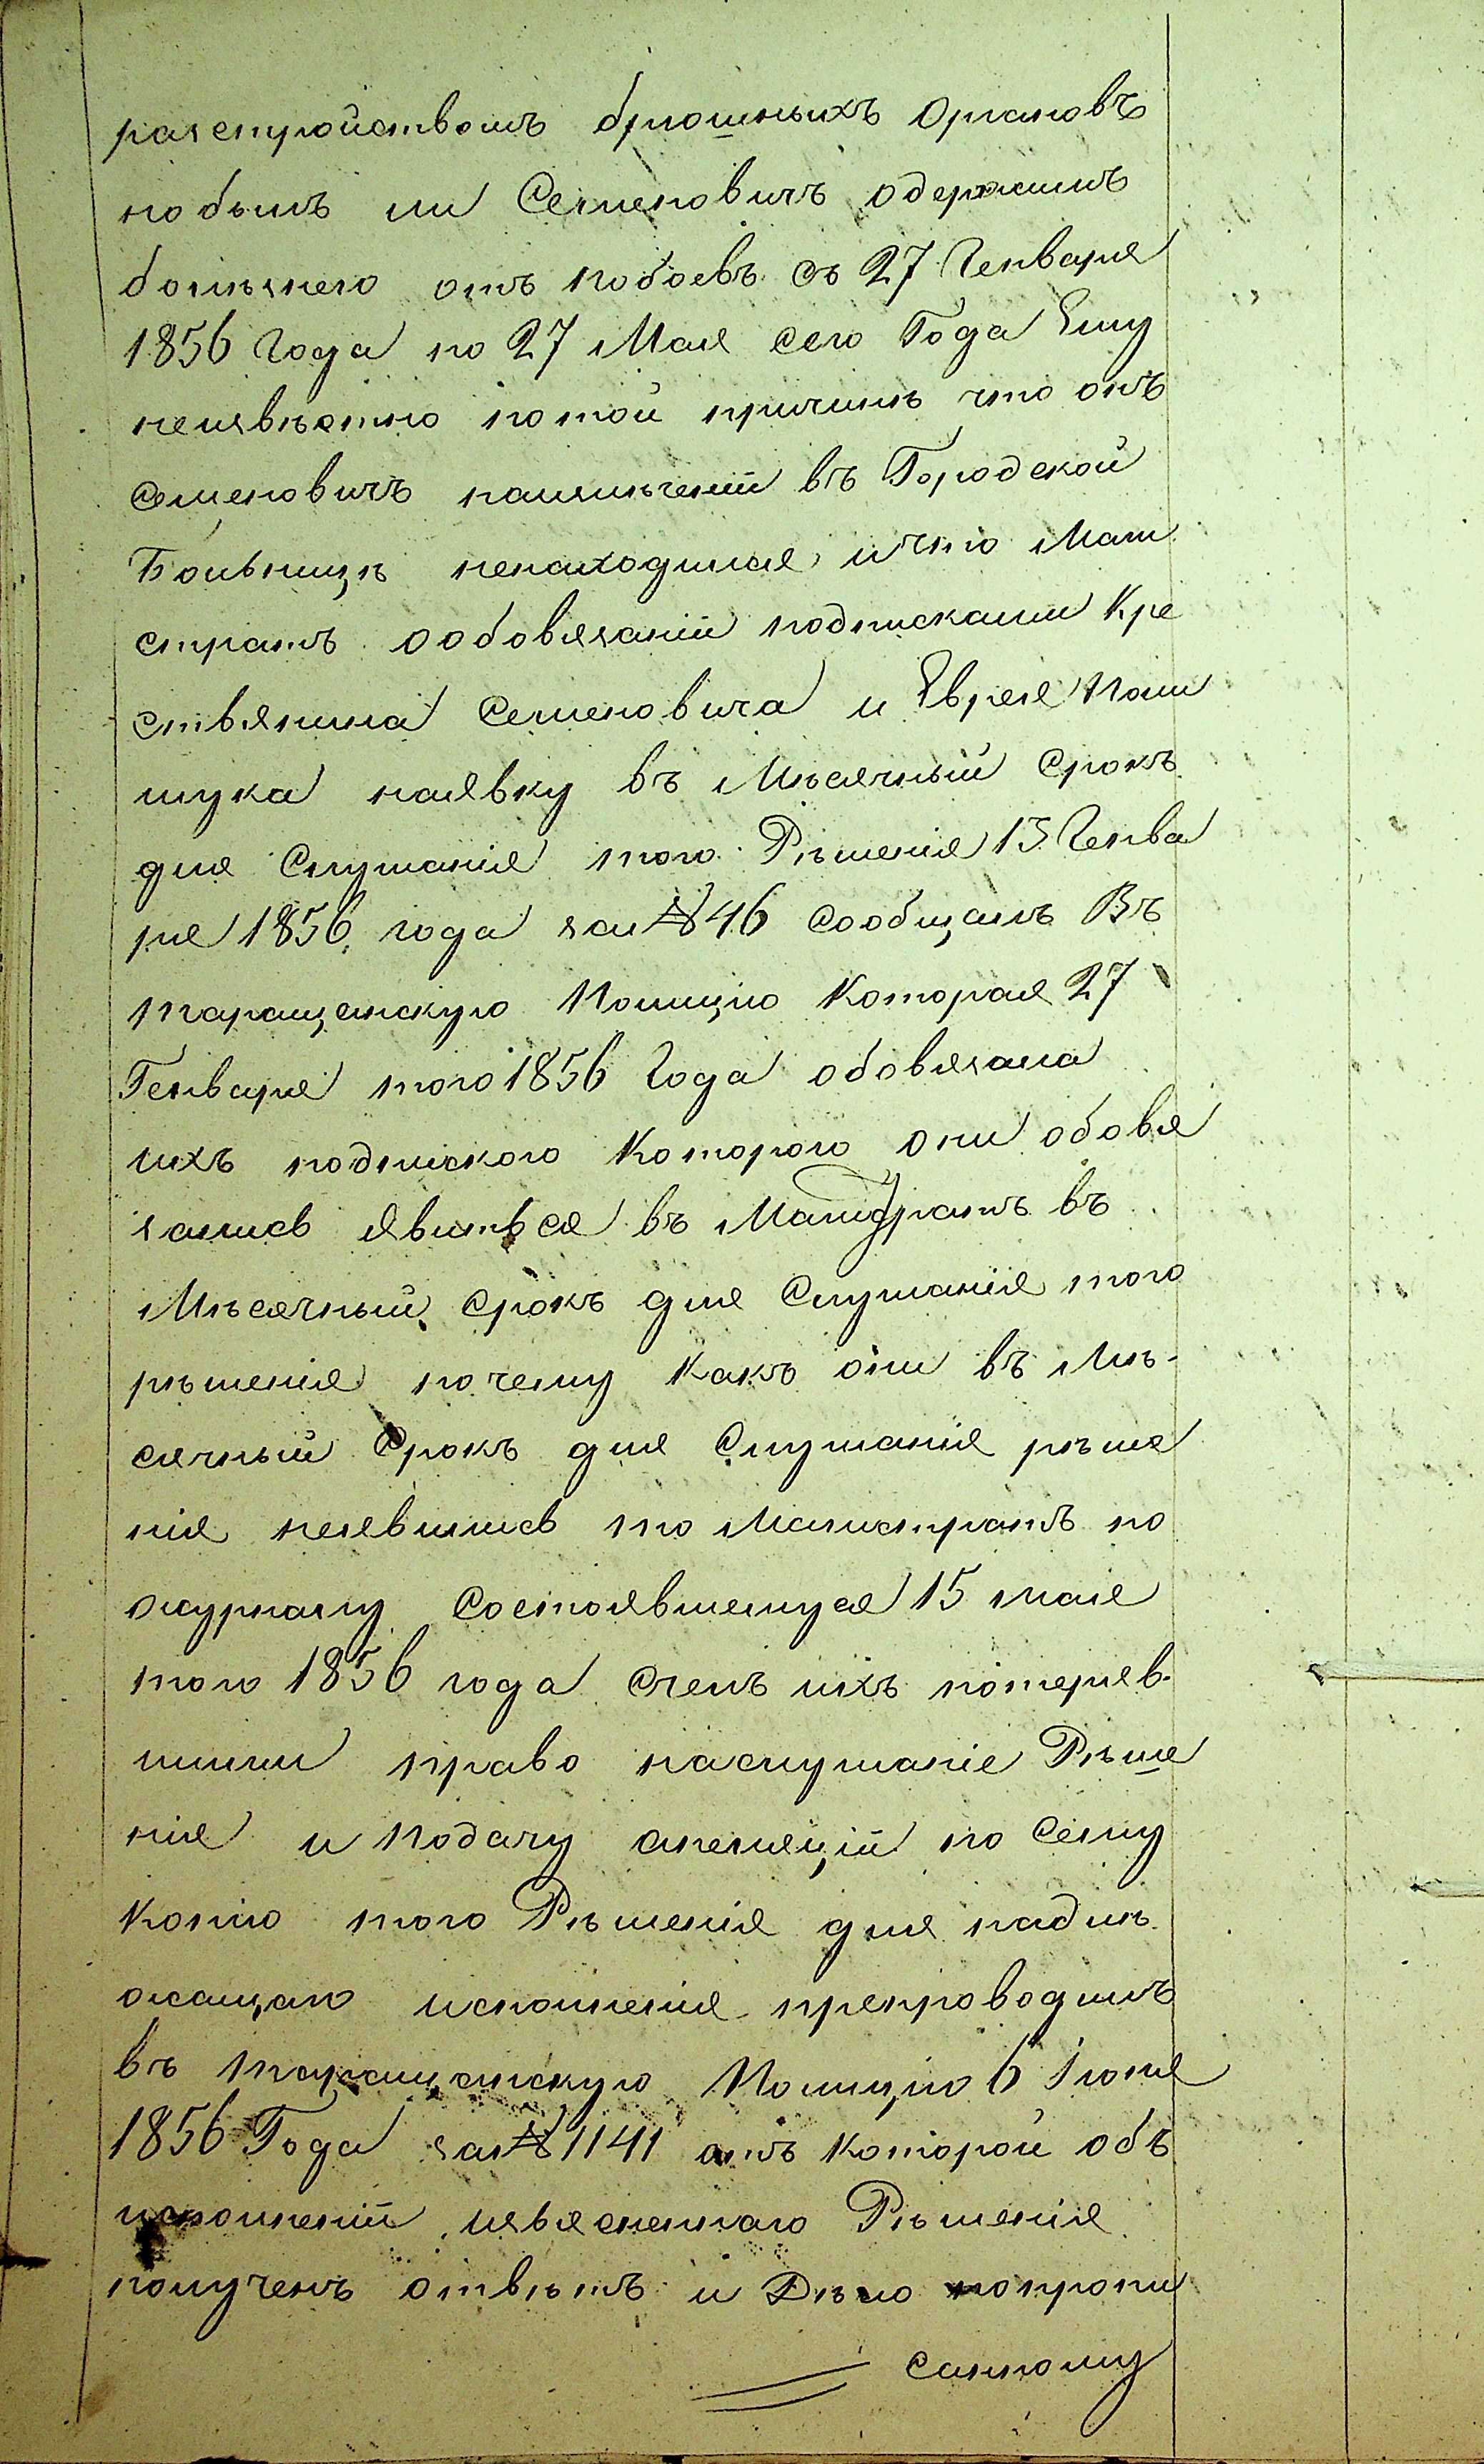 разстройствомъ брюшныхъ Органовъ
но былъ ли Семеновичъ одержимъ
болѣзнею отъ побоевъ съ 27 Генваря
1856 Года по 27 Мая сего Года Ему
неизвѣстно потой причинѣ что онъ
Семеновичъ наизлѣченіи въ Городской
Больницѣ ненаходился, и что Маги
стратъ ообовязаніи подписками Кре
стьянина Семеновича и Еврея Поли
щука наявку въ Мѣсячный Срокъ
для Слушанія того Рѣшенія 13 Генва
ря 1856 года за № 46 сообщалъ Въ
Таращанскую Полицію Которая 27
Генваря того 1856 Года обовязала
ихъ подпискою Которою они обовя
зались явиться въ Магистратъ въ
Мѣсячный Срокъ для Слушанія того
рѣшенія почему Какъ они въ Мѣ-
сячный Срокъ для Слушанія рѣше
нія неявились то Магистратъ по
журналу Состоявшемуся 15 мая
того 1856 года Счелъ ихъ потеряв-
шими право наслушаніе Рѣше
нія и Подачу апеляціи по Сему
Копію того Рѣшенія для надлѣ
жащаго исполненія препроводилъ
въ Таращанскую Полицію 6 Іюня
1856 Года за № 1141 отъ Которой объ
исполненіи изъясненнаго Рѣшенія
полученъ отвѣтъ и Дѣло попропи
санному